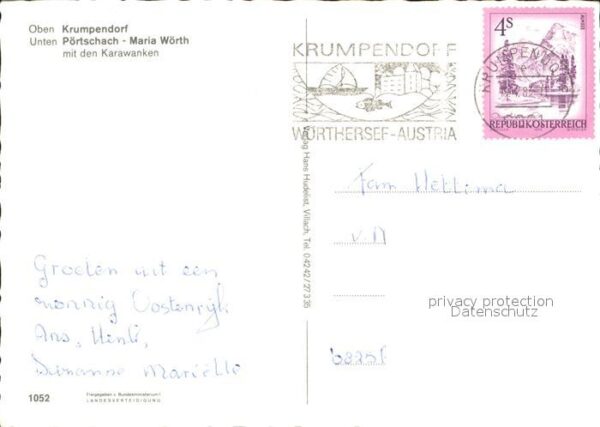 Oben Krumpendorf
Unten Pörtschach - Maria Wörth
mit den Karawanken
KRUMPENDORF
WÖRTHERSEE-AUSTRIA
4S
REPUBLIK ÖSTERREICH
KRUMPENDO
Verlag Hans Hudelist, Villach, Tel. 04242/27335
Fam Hettima
privacy protection
Datenschutz
Groeten uit een
zonnig Oostenrijk
Ans, Henk,
Suzanne Mariëlle
1052
Freigegeben v. Bundesministerium f.
LANDESVERTEIDIGUNG